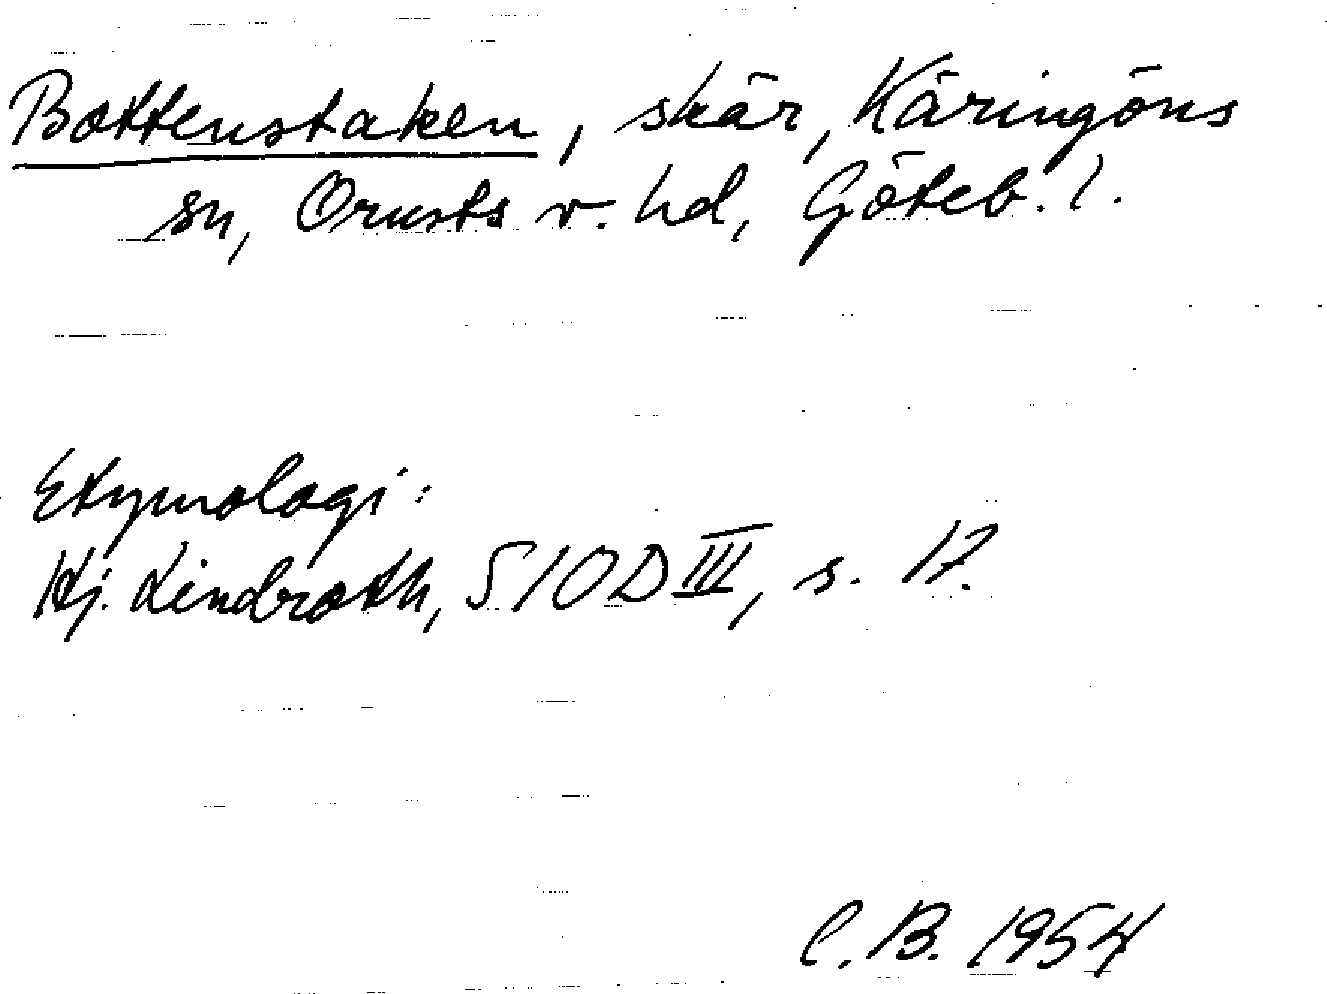 Bottenstaken, skär, Käringöns
sn, Orusts v. hd, Göteb. l.
Etymologi:
Hj. Lindroth, SIOD III, s. 17.
C. B. 1954